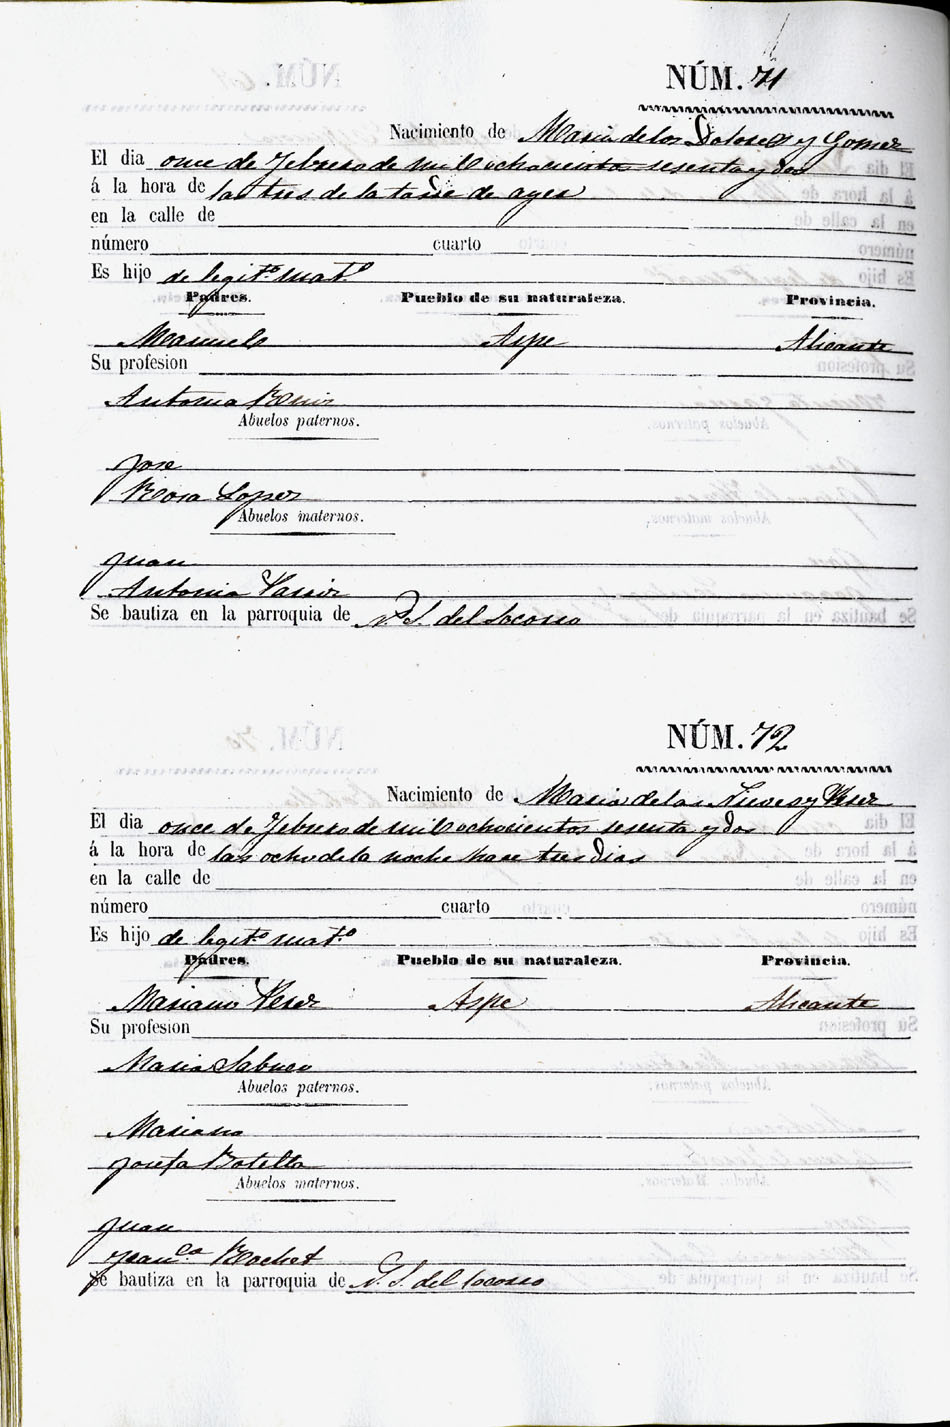 NÚM. 71
Nacimiento de Maria de los Dolores y Gomez
El dia once de Febrero de mil ochocientos sesenta y dos
á la hora de las tres de la tarde de ayer
en la calle de
número cuarto
Es hijo de legit.º mat.º
Padres. Pueblo de su naturaleza. Provincia.
Manuel Aspe Alicante
Su profesion
Antonia
Abuelos paternos.
Jose
Rosa Lopez
Abuelos maternos.
Juan
Antonia
Se bautiza en la parroquia de N. S. del Socorro
NÚM. 72
Nacimiento de Maria de las Nieves y
El dia once de Febrero de mil ochocientos sesenta y dos
á la hora de las ocho de la noche hace tres dias
en la calle de
número cuarto
Es hijo de legit.º mat.º
Padres. Pueblo de su naturaleza. Provincia.
Mariano Aspe Alicante
Su profesion
Maria Sabuco
Abuelos paternos.
Mariano
Josefa Botella
Abuelos maternos.
Juan
Fran.ca
Se bautiza en la parroquia de N. S. del Socorro